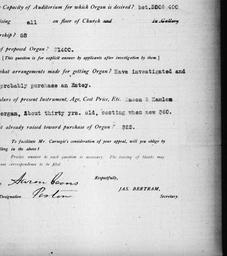 Capacity of Auditorium for which Organ is desired? bet.350& 400
ising all on floor of Church and in Gallery
rship? 68
of proposed Organ? $1400.
[This question is for explicit answer by applicants after investigation by them.]
hat arrangements made for getting Organ? Have investigated and
probably purchase an Estey.
ulars of present Instrument, Age, Cost Price, Etc. Mason & Hamlem
organ, About thirty yrs. old, costing when new $60.
nt already raised toward purchase of Organ?
To facilitate Mr. Carnegie's consideration of appeal, will you oblige by
lling in the above?
Precise answer to each question is necessary. The issuing of blanks may
not correspondence to be filed
Respectfully,
Pastor
JAS. BERTRAM,
Designation
Secretary.